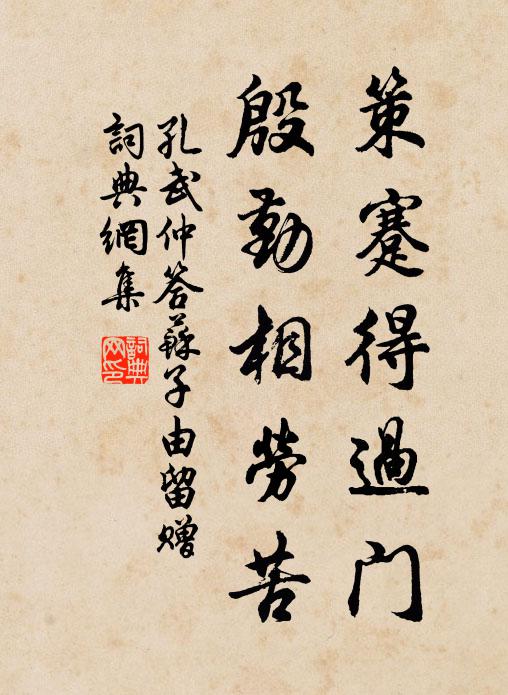 策蹇得過門
殷勤相勞苦
孔武仲答蘇子由留贈
詞典網集
詞典網印